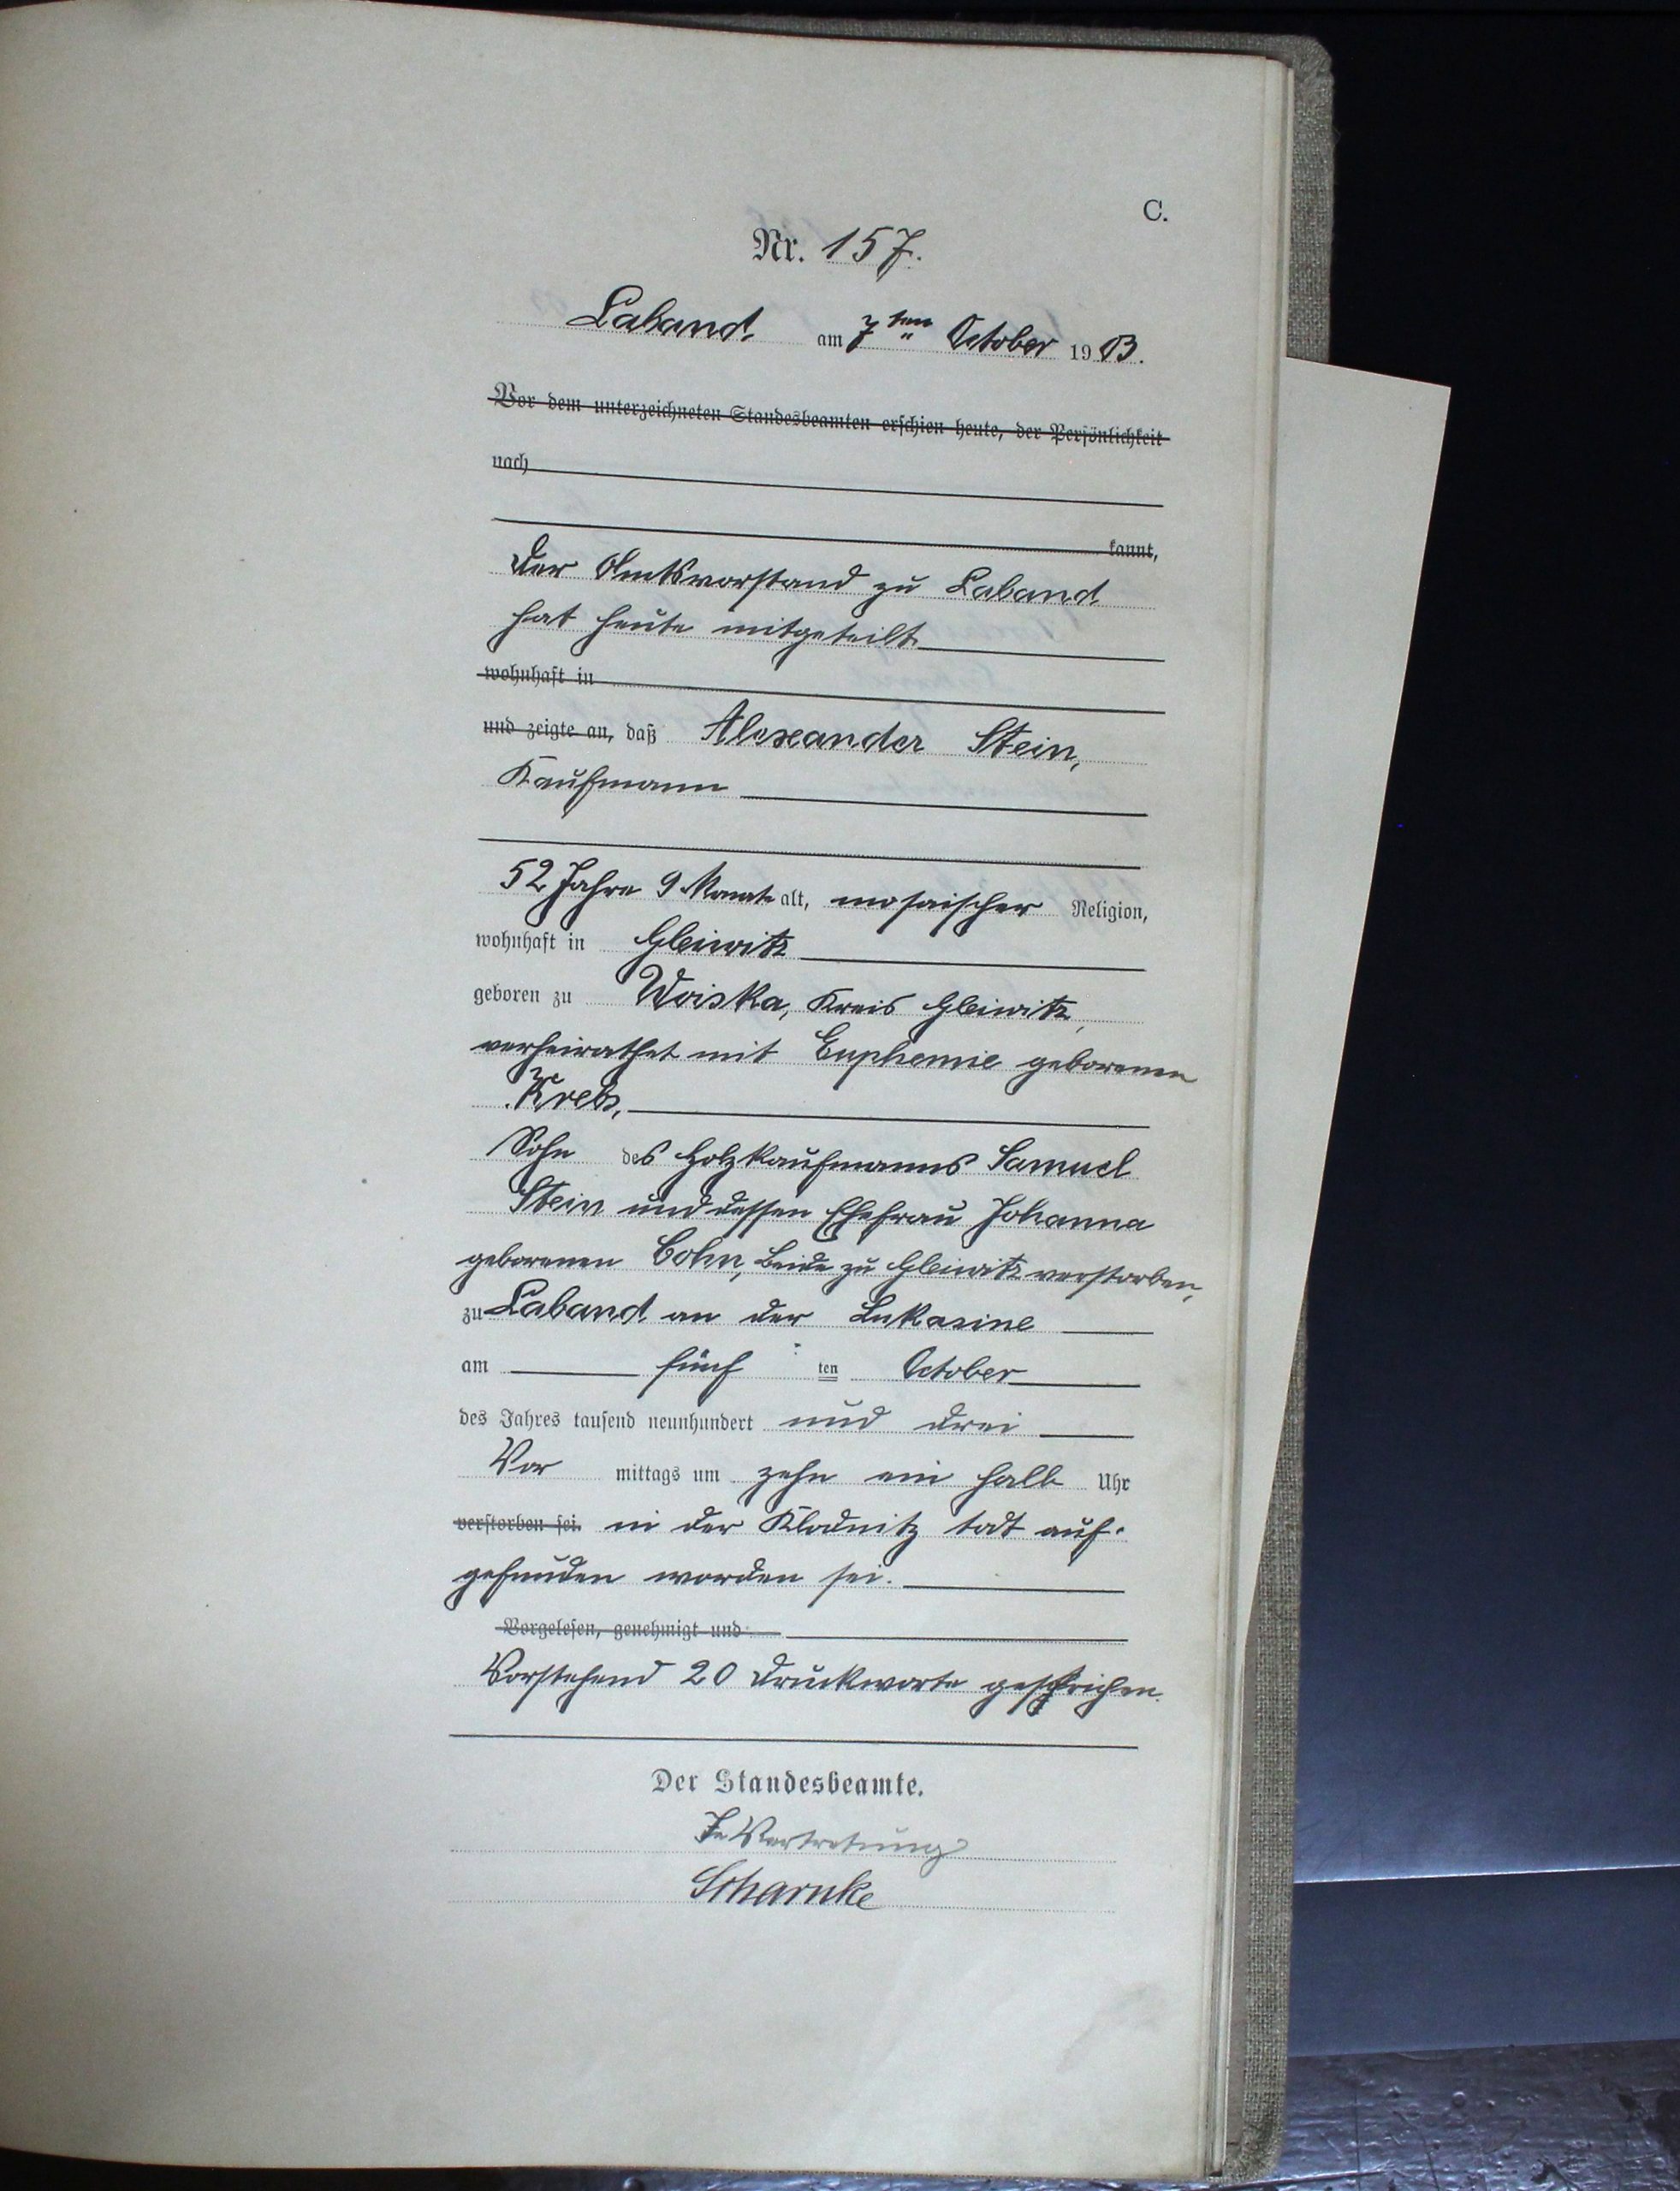 C.
Nr. 157.
Laband am 7ten October 1903.
Vor dem unterzeichneten Standesbeamten erschien heute, der Persönlichkeit
nach
kannt,
Der Amtsvorstand zu Laband
hat heute mitgeteilt
wohnhaft in
und zeigte an, daß Alexander Stein,
Kaufmann
52 Jahre 9 Monate alt, mosaischer Religion,
wohnhaft in Gleiwitz
geboren zu Woiska, Kreis Gleiwitz,
verheirathet mit Euphemie geborenen
Krebs,
Sohn des Holzkaufmanns Samuel
Stein und dessen Ehefrau Johanna
geborenen Cohn, beide zu Gleiwitz verstorben,
zu Laband an der Lukasine
am fünf ten October
des Jahres tausend neunhundert und drei
Vor mittags um zehn ein halb Uhr
verstorben sei. in der Klodnitz todt auf-
gefunden worden sei.
Vorgelesen, genehmigt und
Vorstehend 20 Druckworte gestrichen.
Der Standesbeamte.
In Vertretung
Scharnke